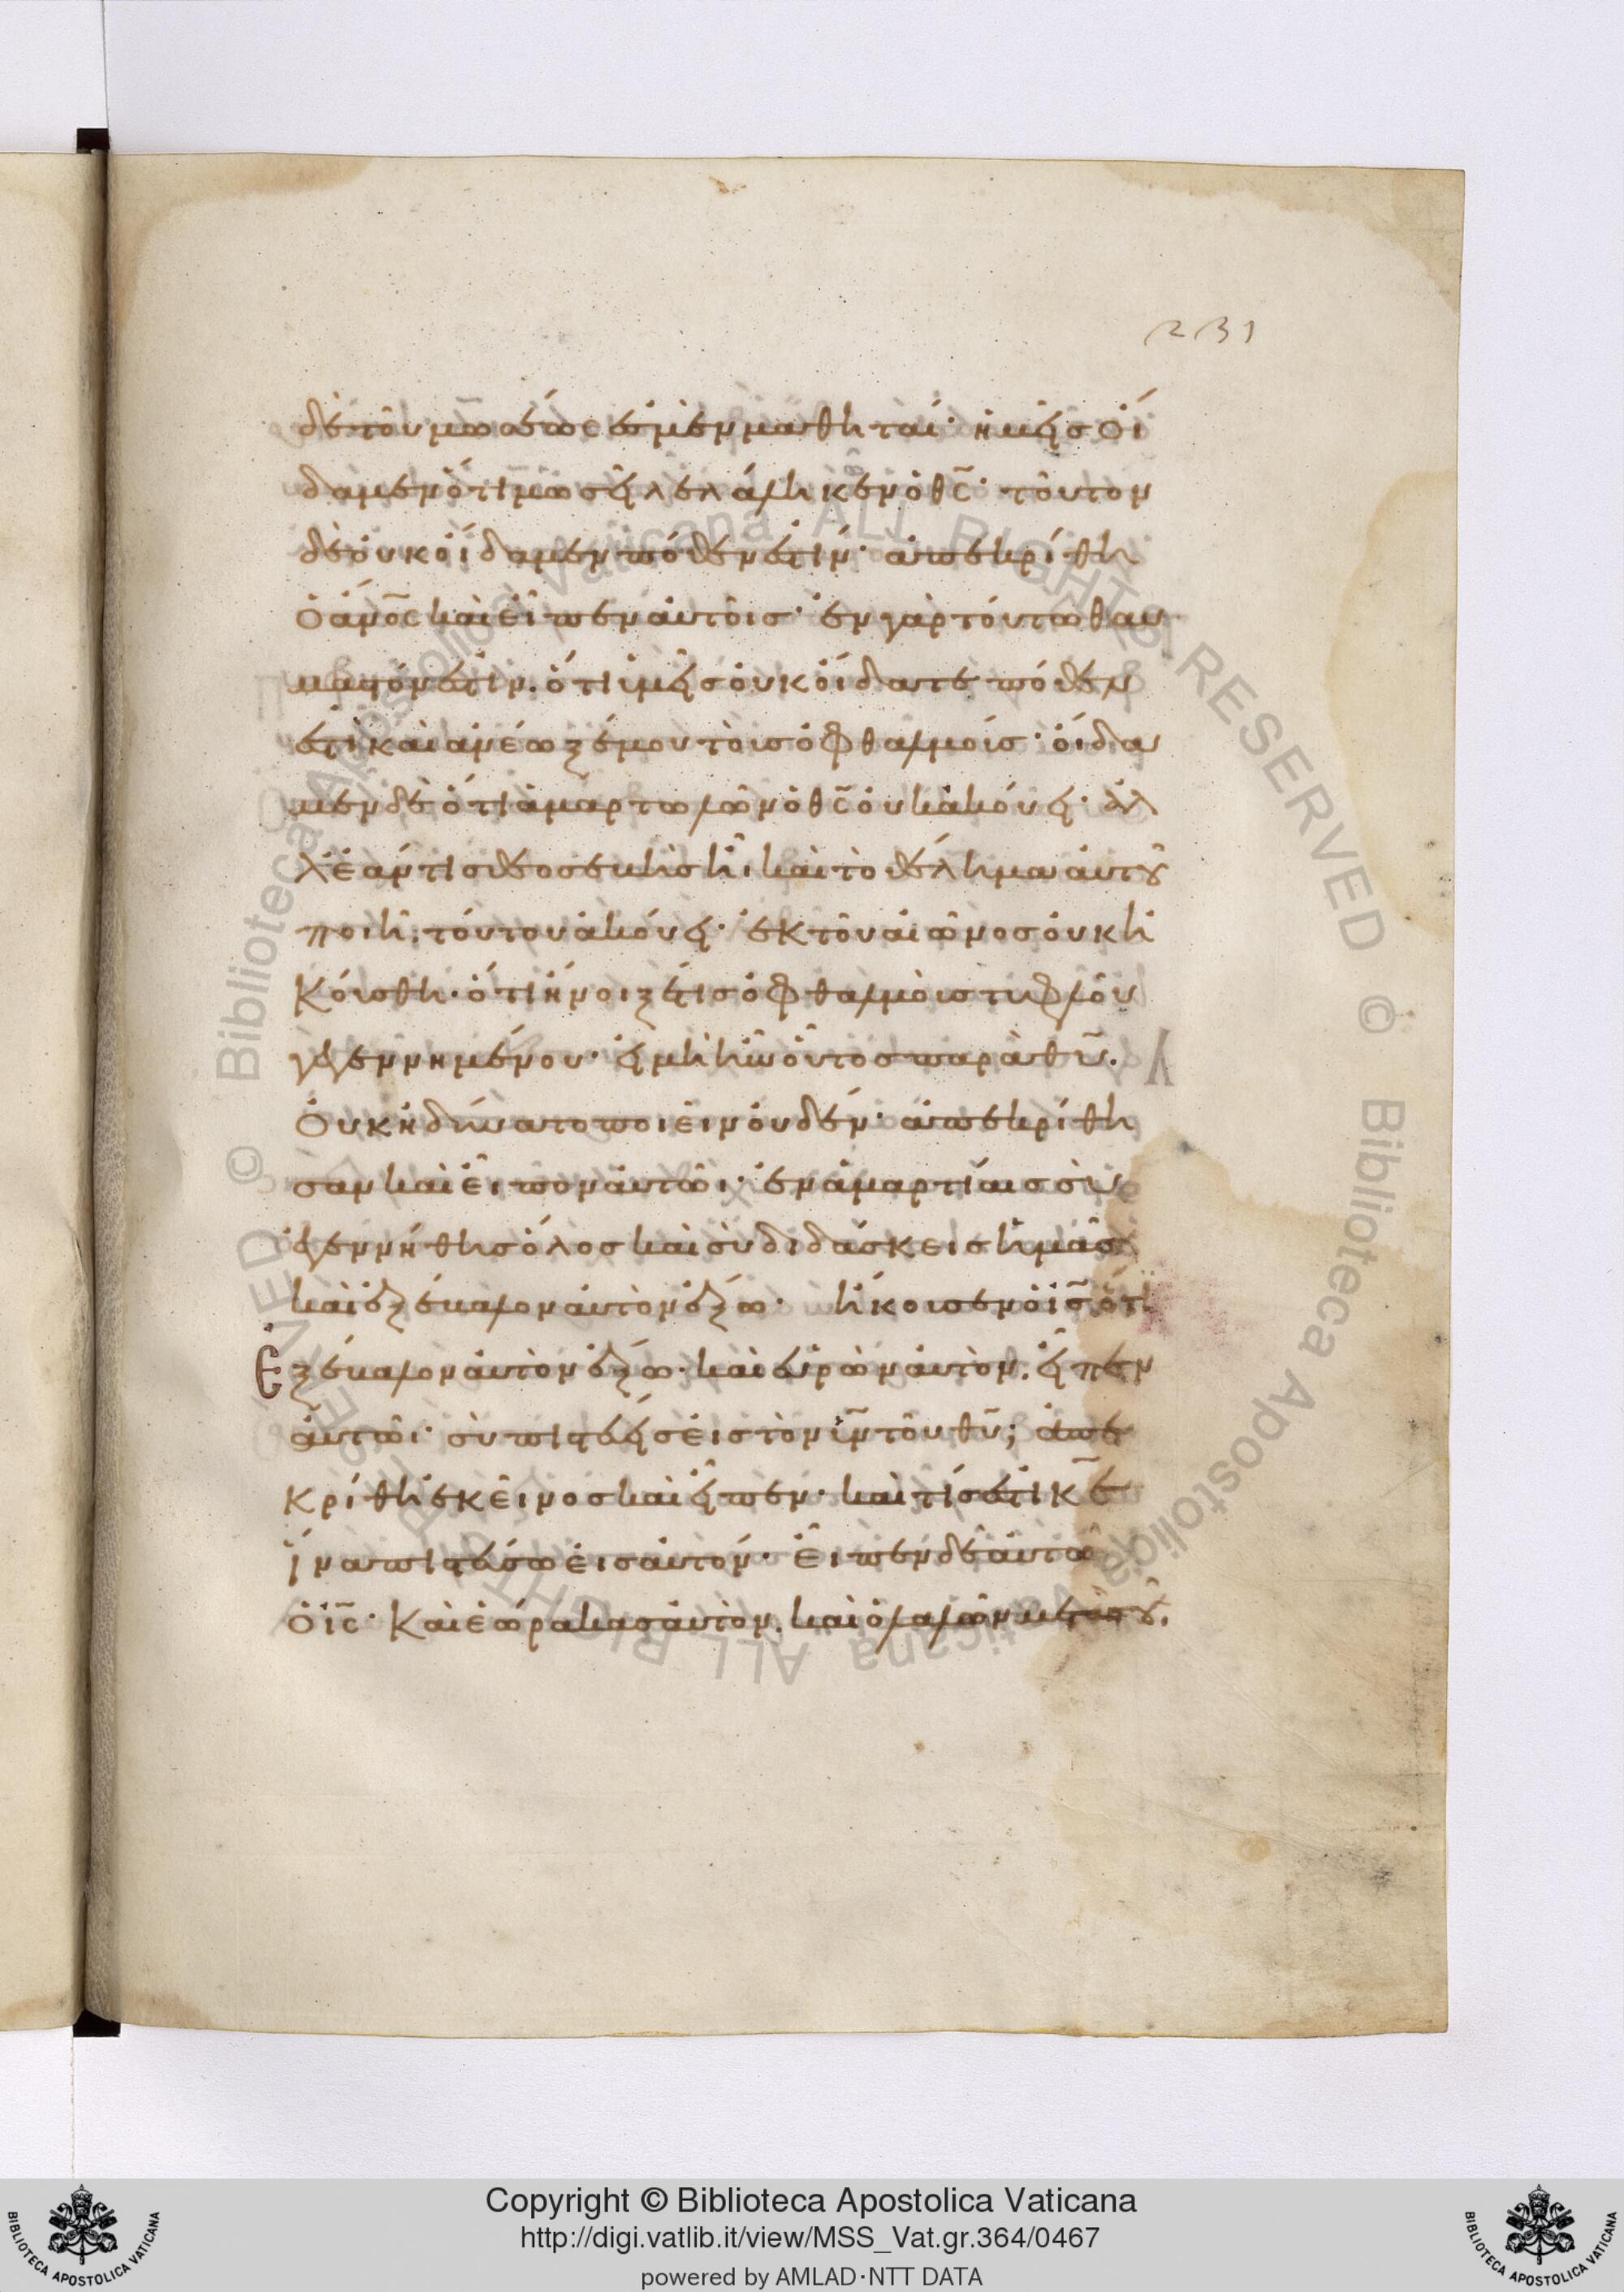 231
δὲ τοῦ μω̅σέως ἐσμὲν μαθηταί· ἡμεῖς οἴ
δαμεν ὅτι μω̅σεῖ λελάληκεν ὁ θς̅· τοῦτον
δὲ οὐκ οἴδαμεν πόθεν ἐστίν· ἀπεκρίθη
ὁ ἄνο̅ς καὶ εἶπεν αὐτοῖς· ἐν γὰρ τούτω θαυ
μαστόν ἐστιν. ὅτι ὑμεῖς οὐκ οἴδατε πόθεν
ἐστὶ καὶ ἀνέωξέ μου τοὺς ὀφθαλμούς· οἴδα
μεν δὲ ὅτι ἁμαρτωλῶν ὁ θς̅ οὐκ ἀκούει· ἀλ
λ' ἐάν τις θεοσεβὴς ἦ, καὶ τὸ θέλημα αὐτοῦ
ποιῆ, τούτου ἀκούει· ἐκ τοῦ αἰῶνος οὐκ ἠ
κούσθη· ὅτι ἤνοιξέ τις ὀφθαλμοὺς τυφλοῦ
γεγεννημένου· εἰ μὴ ἦν οὗτος παρὰ θυ̅.
Οὐκ ἠδύνατο ποιεῖν οὐδέν· ἀπεκρίθη
σαν καὶ εἶπον αὐτῶι· ἐν ἁμαρτίαις σὺ
ἐγεννήθης ὅλος καὶ σὺ διδάσκεις ἡμᾶς
καὶ ἐξέβαλον αὐτὸν ἔξω· ἤκουσεν ὁ ις̅ ὅτι
Ἐξέβαλον αὐτὸν ἔξω· καὶ εὑρὼν αὐτὸν. εἶπεν
αὐτῶι· σὺ πιστεύεις εἰς τὸν υν̅ τοῦ θυ̅; ἀπε
κρίθη ἐκεῖνος καὶ εἶπεν· καὶ τίς ἐστι κε̅
ἵνα πιστεύσω εἰς αὐτόν· εἶπεν δὲ αὐτῶ
ὁ ις̅· Καὶ ἑώρακας αὐτὸν. καὶ ὁ λαλῶν μετὰ σοῦ.
Copyright © Biblioteca Apostolica Vaticana
http://digi.vatlib.it/view/MSS_Vat.gr.364/0467
powered by AMLAD·NTT DATA